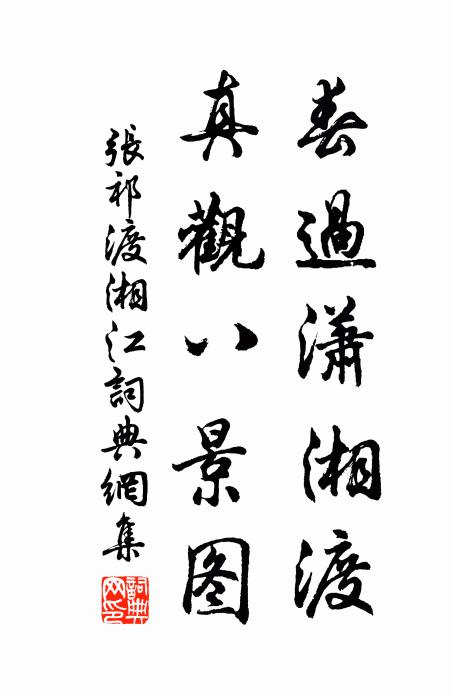 春過瀟湘渡
真觀八景图
張祁渡湘江詞典網集
詞典网印